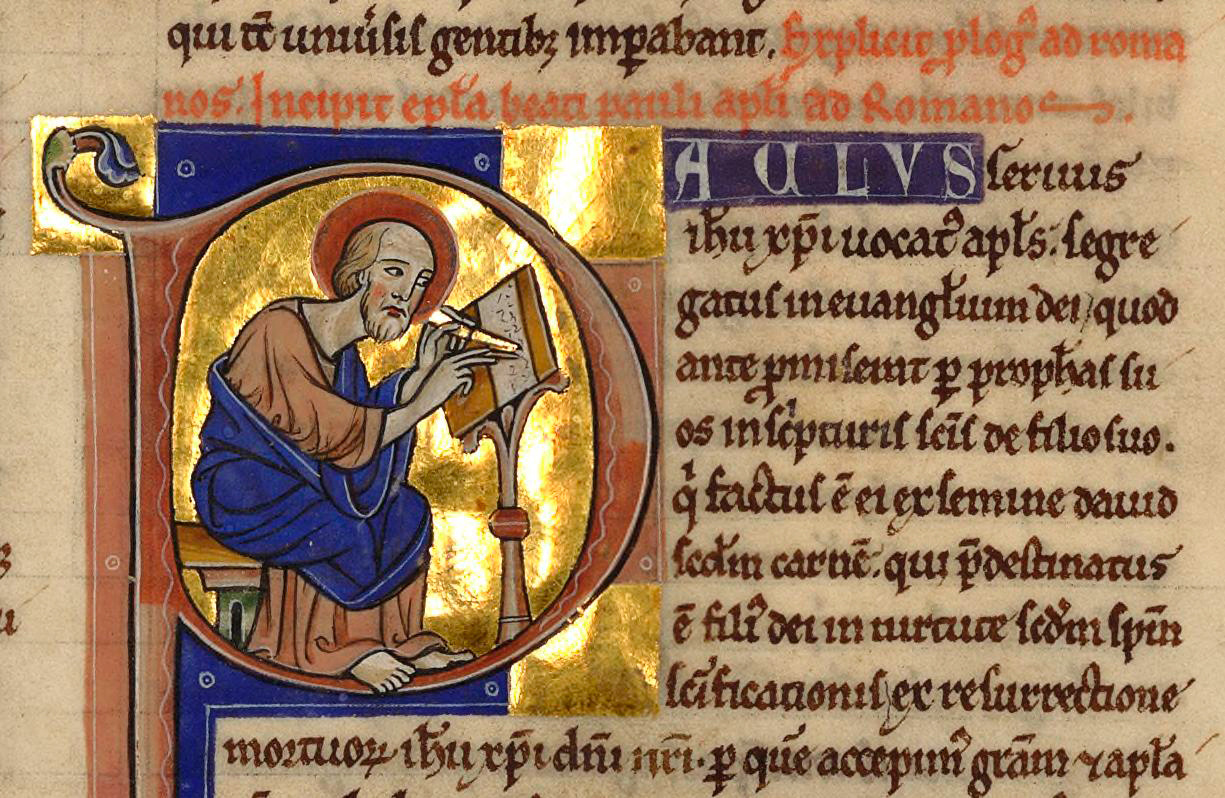 qui tc̄ uniu͛sis gentibꝫ imꝑabant. Explicit ꝓlogꝰ ad roma
nos. Incipit ep̄la beati pauli apl̄i ad Romanos.
PAULUS seruus
ih̄u xp̄i uocatꝰ apl̄s. segre
gatus in euangl̄ium dei, quod
ante ꝓmiserat ꝑ proph̄as su
os in sc͛pturis sc̄is de filio suo.
qⁱ factus ē ei ex semine dauid
scd̄m carnē. qui p̄destinatus
ē filiꝰ dei in uirtute scd̄m sp̄m
sc̄ificationis, ex resurrectione
mortuoꝝ ih̄u xp̄i dn̄i nr̄i. ꝑ quē accepimꝰ gr̄am ⁊ apl̄a